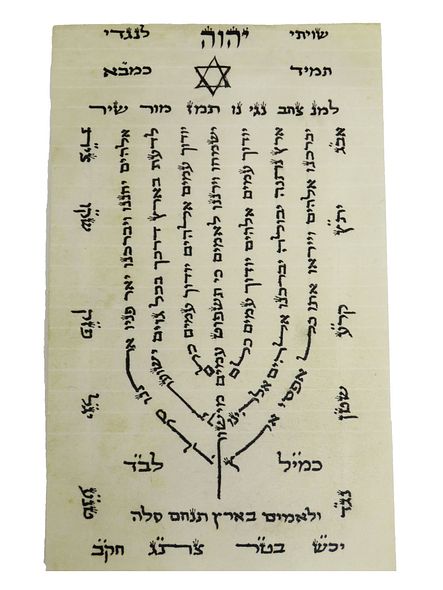 שויתי יהוה לנגדי
תמיד כמבא
למנ צחב נגי נו תמז מור שיר
אבג
יתץ
קרע
שטן
נגד
יברכנו אלהים וייראו אתו כל אפסי
ארץ נתנה יבולה יברכנו אלהים
יודוך עמים אלהים יודוך עמים כלם
ישמחו וירננו לאמים כי תשפוט עמים מישור
יודוך עמים אלהים יודוך עמים כלם
לדעת בארץ דרכך בכל גוים ישועתך
אלהים יחננו ויברכנו יאר פניו
שקו
כמיל לבד
ולאמים בארץ תנחם סלה
יכש בטר צתג חקב